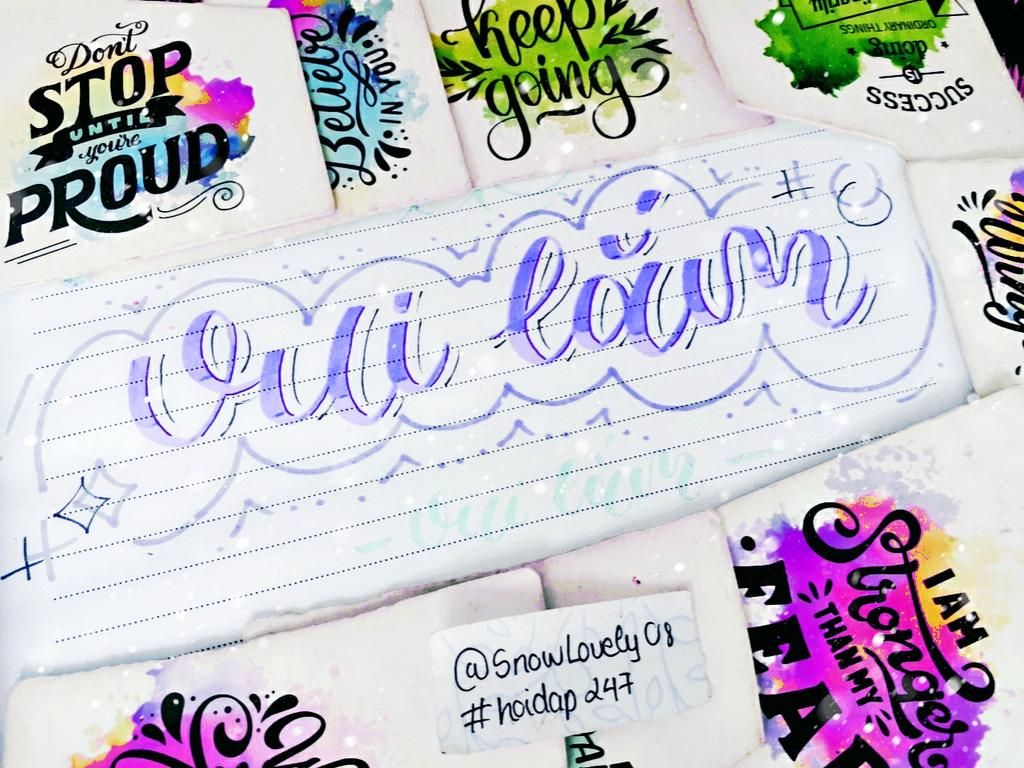 Don't
STOP
UNTIL
you're
PROUD
Believe
IN YOU
keep
going
SUCCESS
IS
doing
ORDINARY THINGS
#
vui lắm
vui lắm
I AM
Stronger
THAN MY
FEAR
@SnowLovely08
#hoidap247